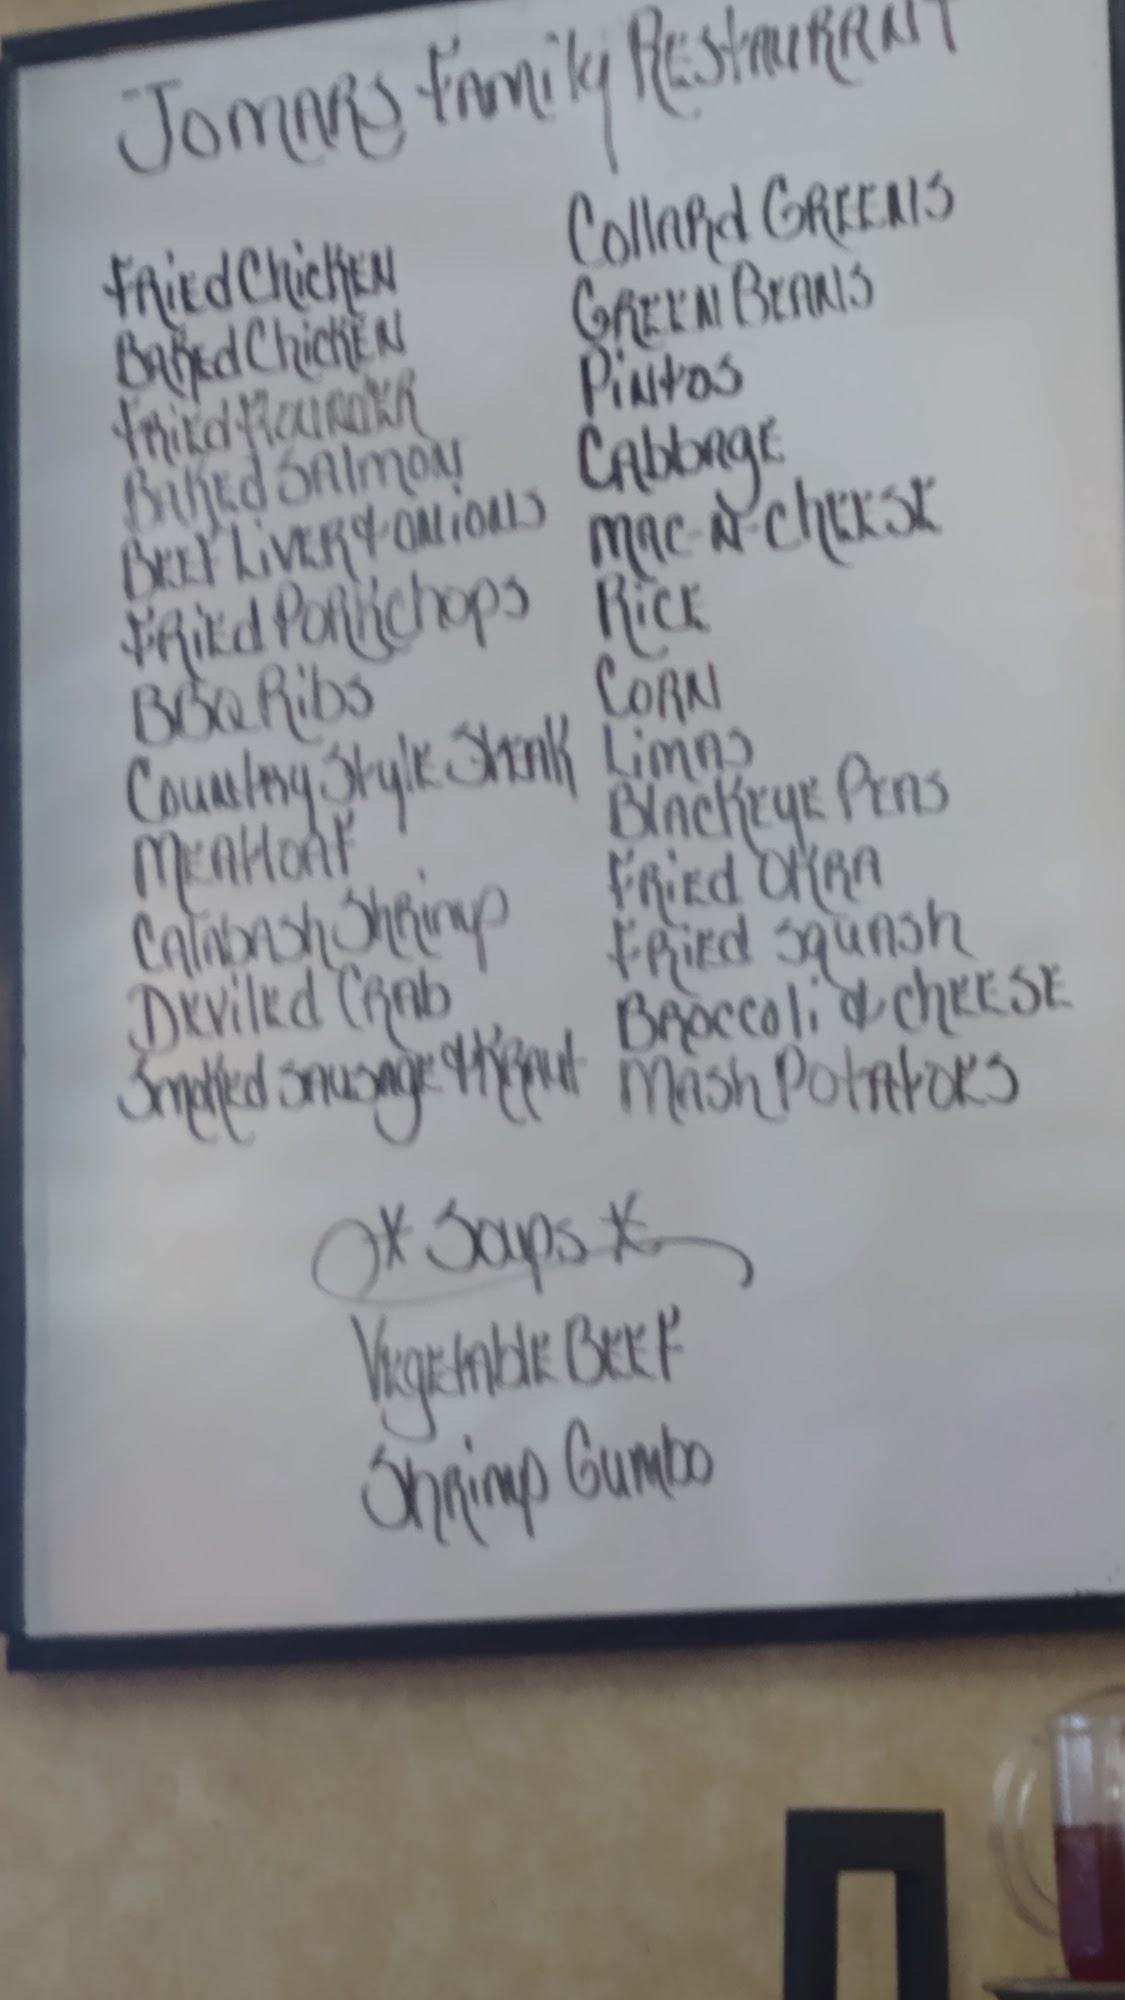 Jomars Family Restaurant
Fried Chicken
Baked Chicken
Fried Flounder
Baked Salmon
Beef Liver & onions
Fried Porkchops
BBQ Ribs
Country Style Steak
Meatloaf
Calabash Shrimp
Deviled Crab
Smoked sausage & Kraut
Collard Greens
Green Beans
Pintos
Cabbage
Mac-N-Cheese
Rice
Corn
Limas
Blackeye Peas
Fried Okra
Fried Squash
Broccoli & Cheese
Mash Potatoes
* Soups *
Vegetable Beef
Shrimp Gumbo